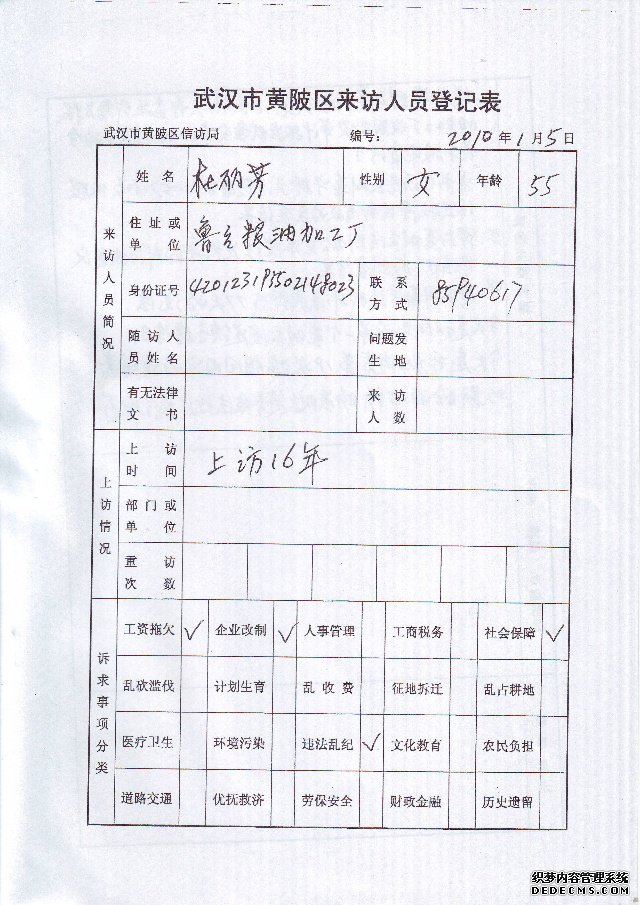 武汉市黄陂区来访人员登记表
武汉市黄陂区信访局 编号: 2010年1月5日
来访人员简况
姓名 杜丽芳 性别 女 年龄 55
住址或单位 鲁台粮油加工厂
身份证号 420123195502148023 联系方式 85940617
随访人员姓名 问题发生地
有无法律文书 来访人数
上访情况
上访时间 上访16年
部门或单位
重访次数
诉求事项分类
工资拖欠 √ 企业改制 √ 人事管理 工商税务 社会保障 √
乱砍滥伐 计划生育 乱收费 征地拆迁 乱占耕地
医疗卫生 环境污染 违法乱纪 √ 文化教育 农民负担
道路交通 优抚救济 劳保安全 财政金融 历史遗留
织梦内容管理系统
DEDECMS.COM